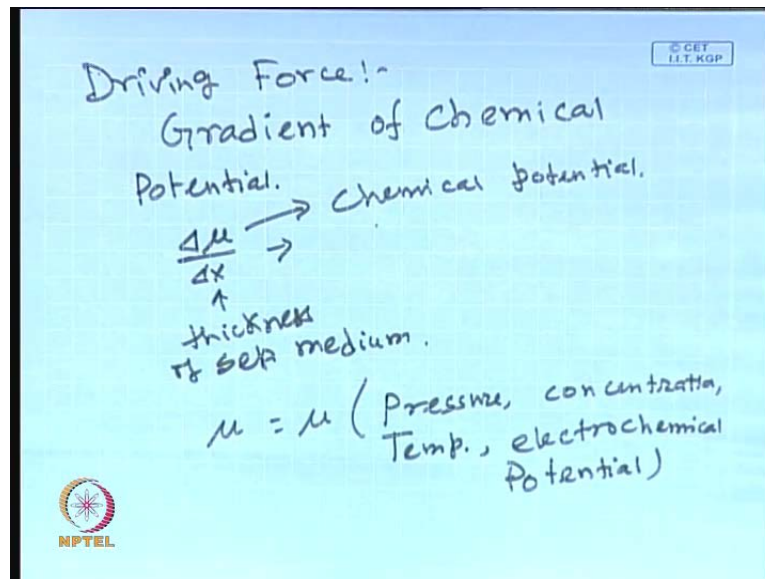 © CET
I.I.T. KGP
Driving Force:-
Gradient of Chemical
Potential.
Δμ → Chemical potential.
Δx →
↑
thickness
of sep medium.
μ = μ ( Pressure, concentration,
Temp., electrochemical
Potential)
NPTEL